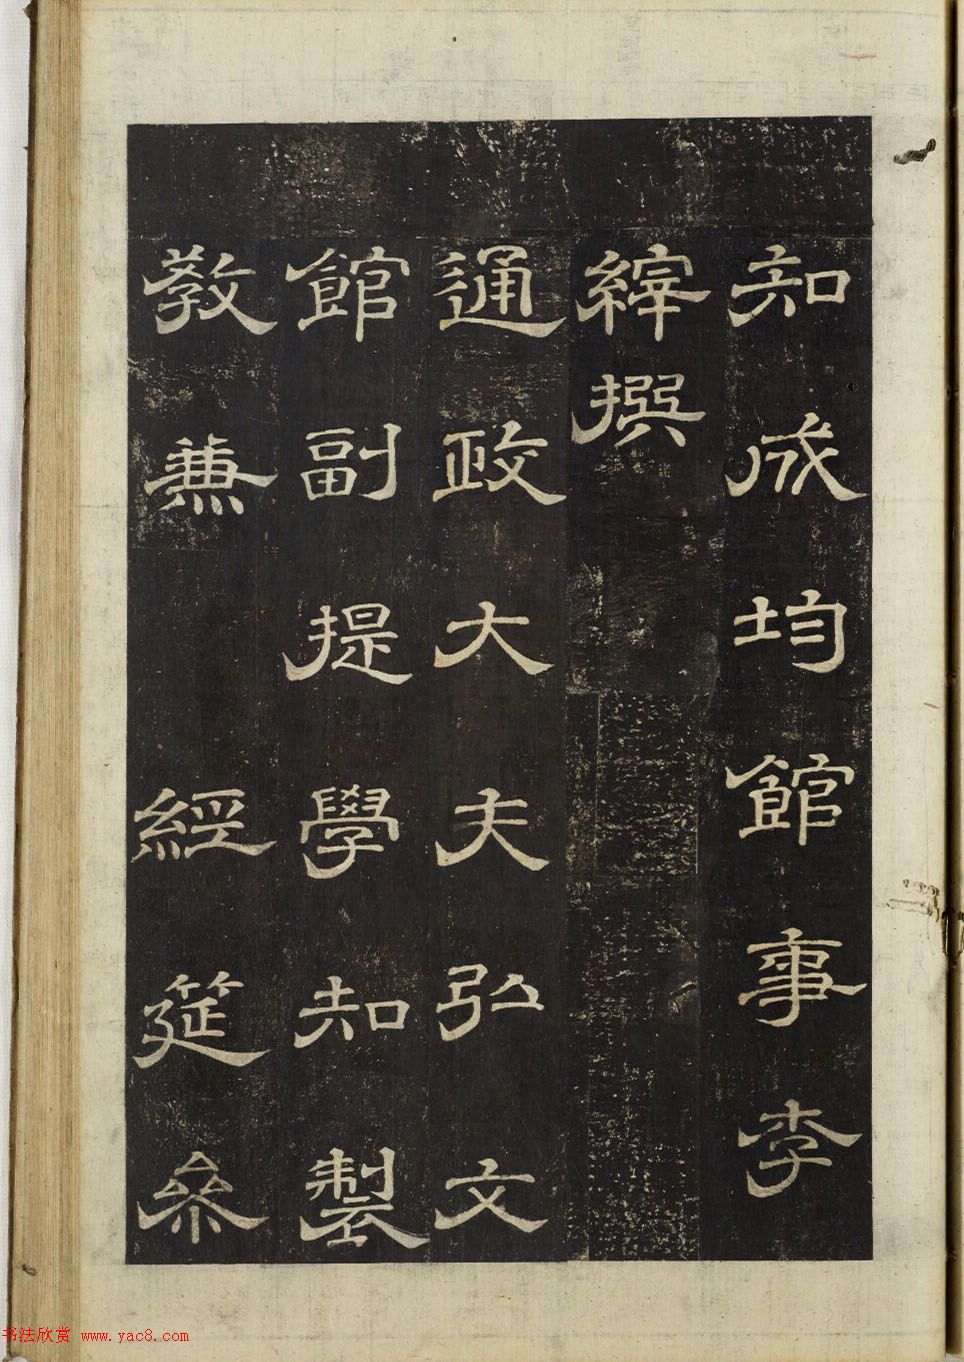 知成均館事李
縡撰
通政大夫弘文
館副提學知製
敎兼經筵參
书法欣赏 www.yac8.com